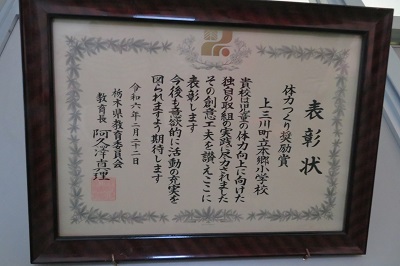 表彰状
体力つくり奨励賞
上三川町立本郷小学校
貴校は児童の体力向上に向けた
独自の取組の実践に尽力されました
その創意工夫を讃えここに
表彰します
今後も意欲的に活動の充実を
図られますよう期待します
令和六年二月二十二日
栃木県教育委員会
教育長 阿久澤真理